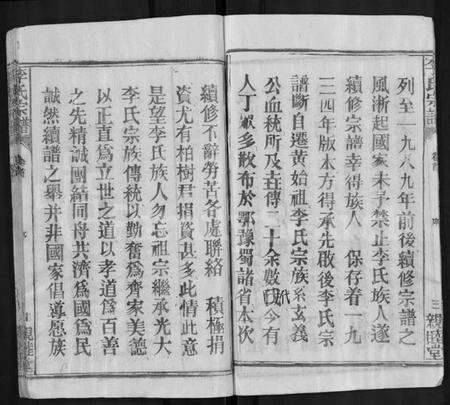 列至一九八九年前後續修宗譜之
風漸起國家未予禁止李氏族人遂
續修宗譜幸得族人 保存着一九
三四年版本方得承先啟後李氏宗
譜斷自遷黄始祖李氏宗族系玄義
公血統所及壵傳二十余數代今有
人丁眾多散布於鄂豫蜀諸省本次
三 親睦堂
李氏宗譜
續修不辭勞苦各處聯絡 積極捐
資尤有柏樹君捐資甚多此情此意
是望李氏族人勿忘祖宗繼承光大
李氏宗族傳統以勤奮爲齊家美德
以正直爲立世之道以孝道爲百善
之先精誠團結同舟共濟爲國爲民
誠然續譜之舉并非國家倡導愿族